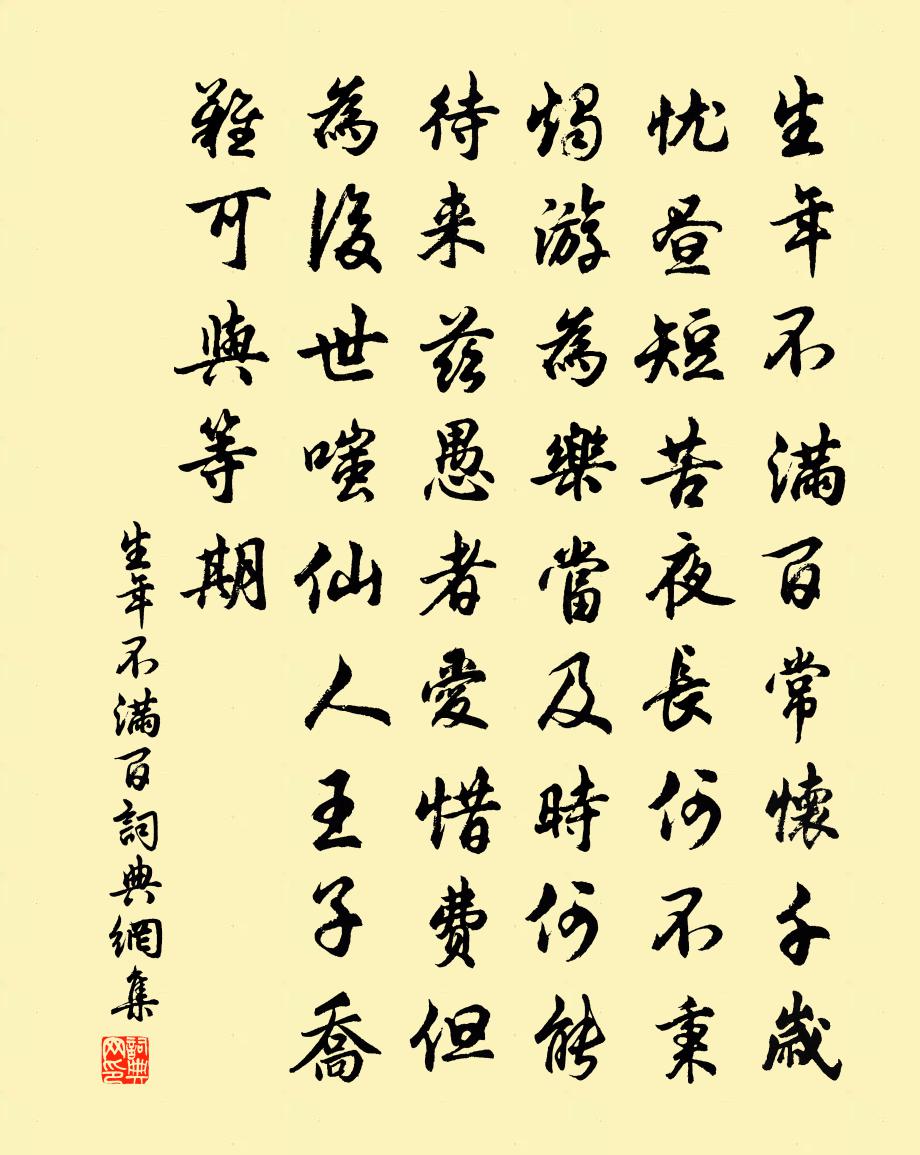 生年不滿百常懷千歲
忧晝短苦夜長何不秉
燭游為樂當及時何能
待来茲愚者愛惜費但
為後世嗤仙人王子喬
難可與等期
生年不滿百詞典網集
詞典网印